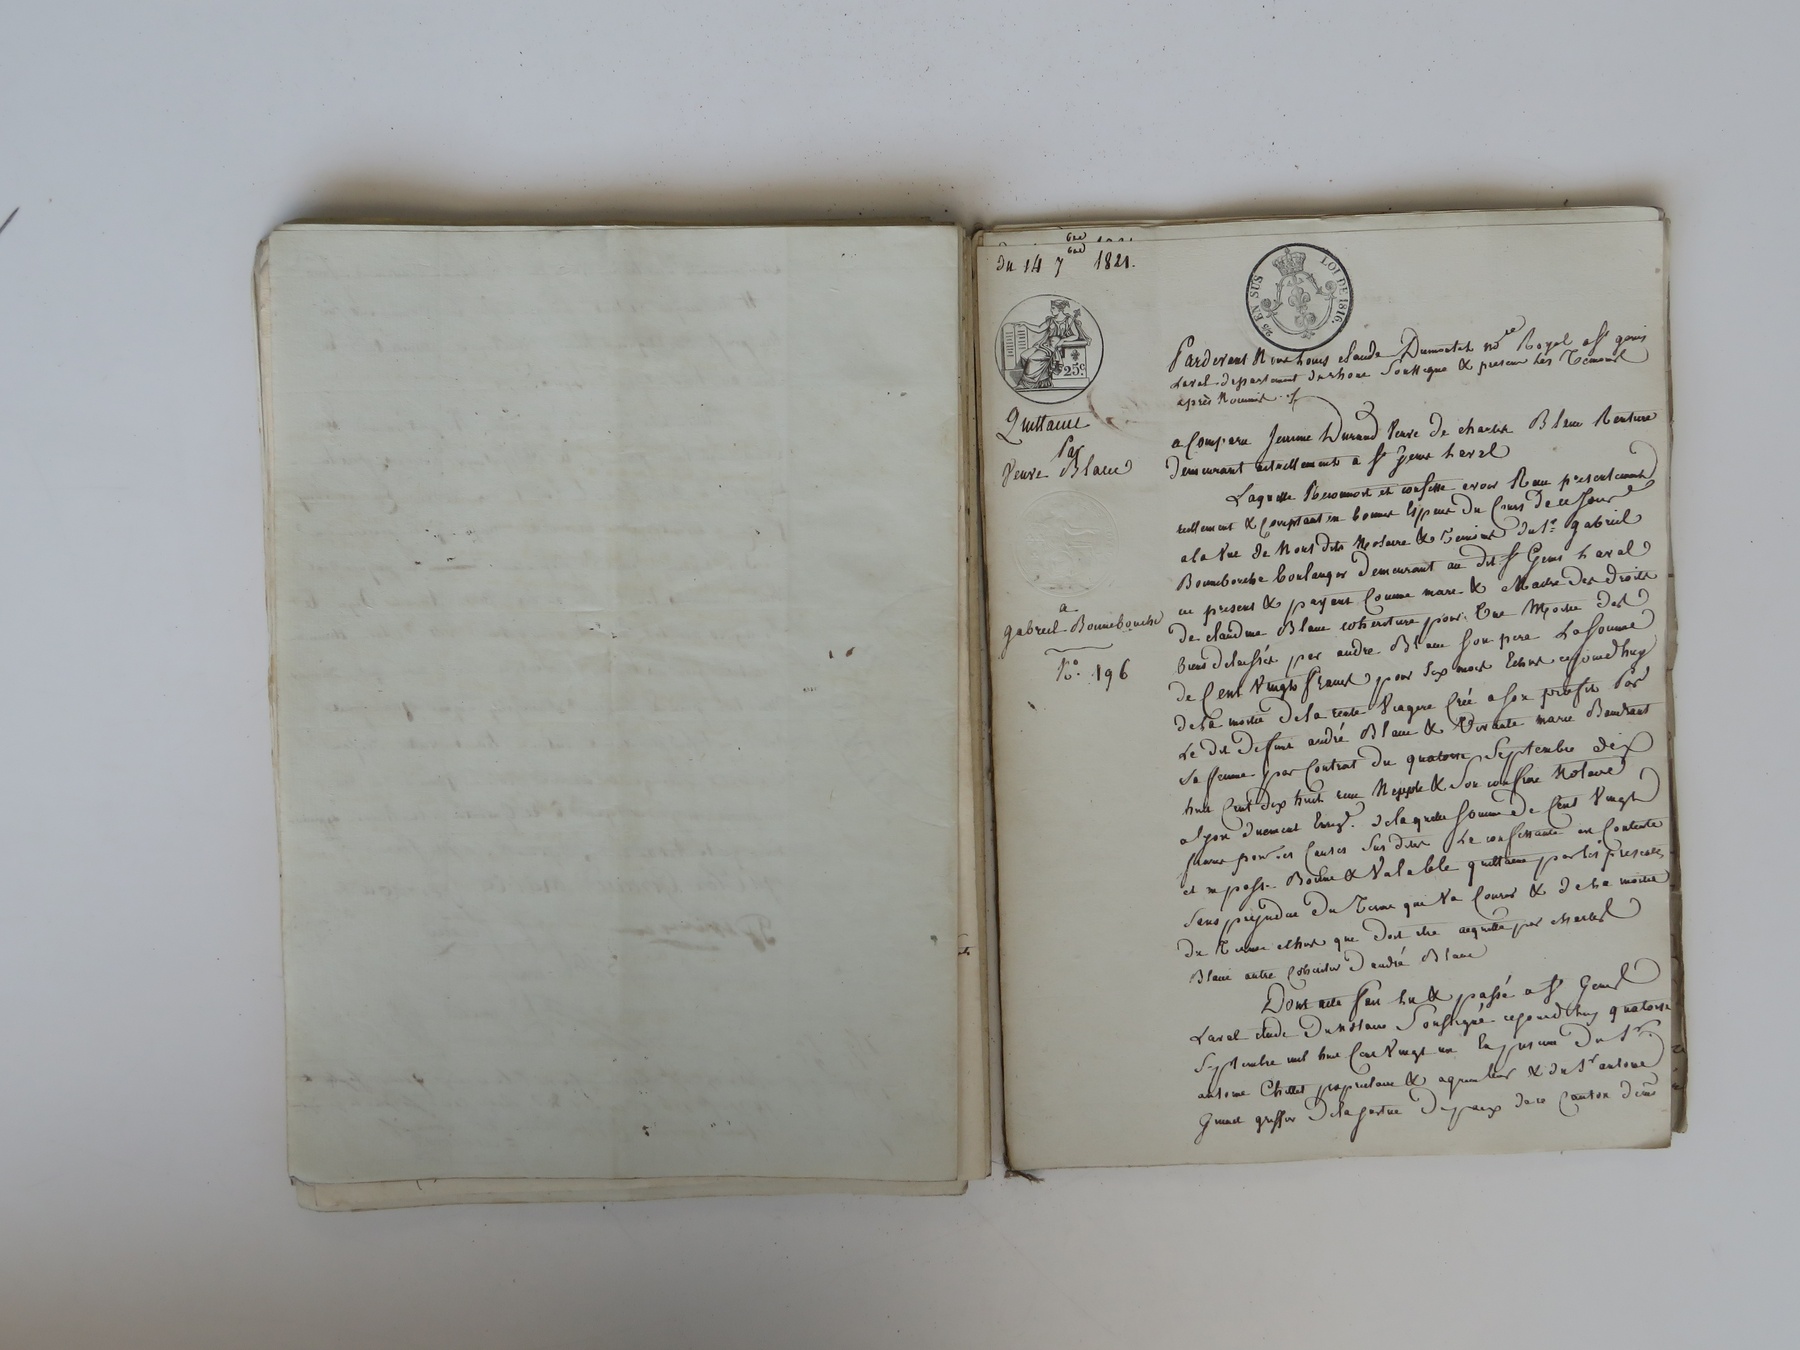 du 14 7bre 1821.
25 c
25 EN SUS LOI DE 1816.
Quittance
Par
Veuve Blanc
a
gabriel Bonnebouche
No. 196
Pardevant Me Louis claude Dumontet nore Royal a St genis
Laval departement du rhone Soussigné & presens les Temoins
après Nommés
a Comparu Jeanne Durand Veuve de charles Blanc Rentiere
demeurant actuellement a St Genis Laval
Laquelle Reconnoit et confesse avoir Recu presentement
reellement & Comptant en bonnes Especes du Cours de ce Jour
a la Vue de Nous dits Notaire & Temoins du Sr. gabriel
Bonnebouche boulanger demeurant au dit St Genis Laval
ce present & payant Comme mari & Maitre des droits
de claudine Blanc coheritiere pour Une Moitié des
biens delaissés par andre Blanc Son pere La Somme
de Cent Vingt francs pour Six mois Echus cejourdhuy
de la moitié de la rente Viagere Créé a Son profit Par
Le dit defunt andré Blanc & Vivante marie
Sa femme par Contrat du quatorze Septembre dix
huit Cent dix huit recu & Son confrere Notaires
a lyon duement Enregé. de laquelle Somme de Cent Vingt
francs pour les Causes Sus dites La confessante est Contente
et en passe Bonne & Valable quittance par les presentes
Sans prejudice du Terme qui Va Courir & de la moitié
du Terme echus que doit etre acquitté par charles
Blanc autre Coheritier d'andré Blanc
Dont acte fait Lu & passé a St Genis
Laval etude du notaire Soussigné cejourdhuy quatorze
Septembre mil huit Cent Vingt un En presence du Sr.
antoine proprietaire & agriculteur & du Sr antoine
greffier de la justice de paix de ce Canton